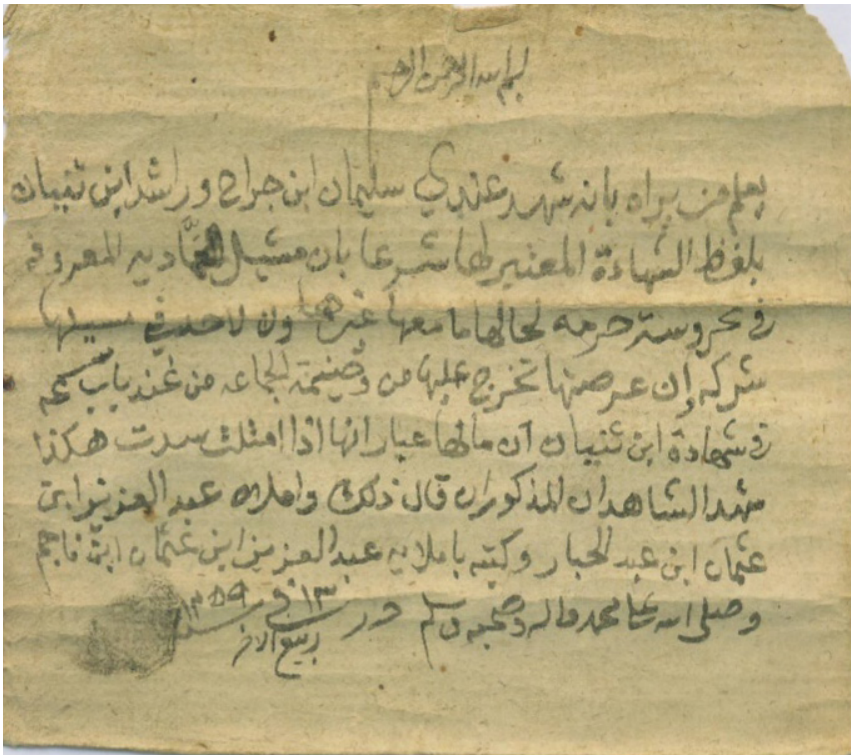 بسم الله الرحمن الرحيم
يعلم من يراه بانه شهد عندي سليمان ابن جراح وراشد ابن ثنيان
بلفظ الشهادة المعتبر لها شرعا بان مسيل الحمَّاديه المعروفه
في محروسة حرمه لحالها ما معها غيرها ولا لاحد في مسيلها
شركه وإن عرصتها تخرج عليها من الجماعه من عند باب
في شهادة ابن ثنيان ان مالها عبار انها اذا امتلت سدت هكذا
شهد الشاهدان المذكوران قال ذلك واملاه عبد العزيز ابن
عثمان ابن عبد الجبار وكتبه باملايه عبد العزيز ابن عثمان ابن ناجم
وصلى الله على محمد واله وصحبه وسلم حرر ١٣ في ربيع الاخر سنة ١٣٥٩